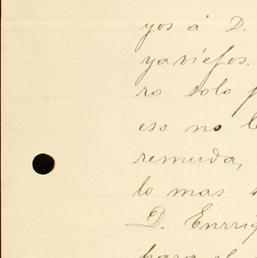 yos á D.
yaviejos.
ro solo p
eso no l
remuda,
lo mas
D. Enrriq
para el